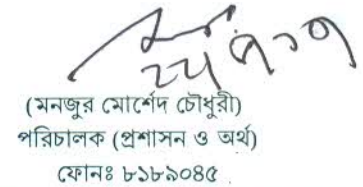 (মনজুর মোর্শেদ চৌধুরী)
পরিচালক (প্রশাসন ও অর্থ)
ফোনঃ ৮১৮৯০৪৫